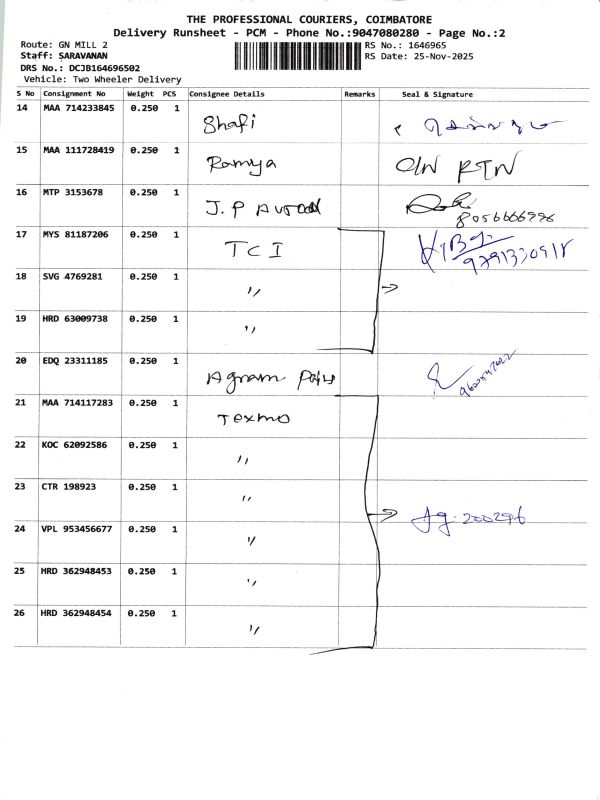 THE PROFESSIONAL COURIERS, COIMBATORE
Delivery Runsheet - PCM - Phone No.:9047080280 - Page No.:2
Route: GN MILL 2
RS No.: 1646965
Staff: SARAVANAN
RS Date: 25-Nov-2025
DRS No.: DCJB164696502
Vehicle: Two Wheeler Delivery
S No Consignment No Weight PCS Consignee Details Remarks Seal & Signature
14 MAA 714233845 0.250 1 Shafi
15 MAA 111728419 0.250 1 Ramya O/N RTN
16 MTP 3153678 0.250 1 J.P
8056666996
17 MYS 81187206 0.250 1 TCI
9791330918
18 SVG 4769281 0.250 1 〃
19 HRD 63009738 0.250 1 〃
20 EDQ 23311185 0.250 1 Agram
21 MAA 714117283 0.250 1 Texmo
22 KOC 62092586 0.250 1 〃
23 CTR 198923 0.250 1 〃
200296
24 VPL 953456677 0.250 1 〃
25 HRD 362948453 0.250 1 〃
26 HRD 362948454 0.250 1 〃